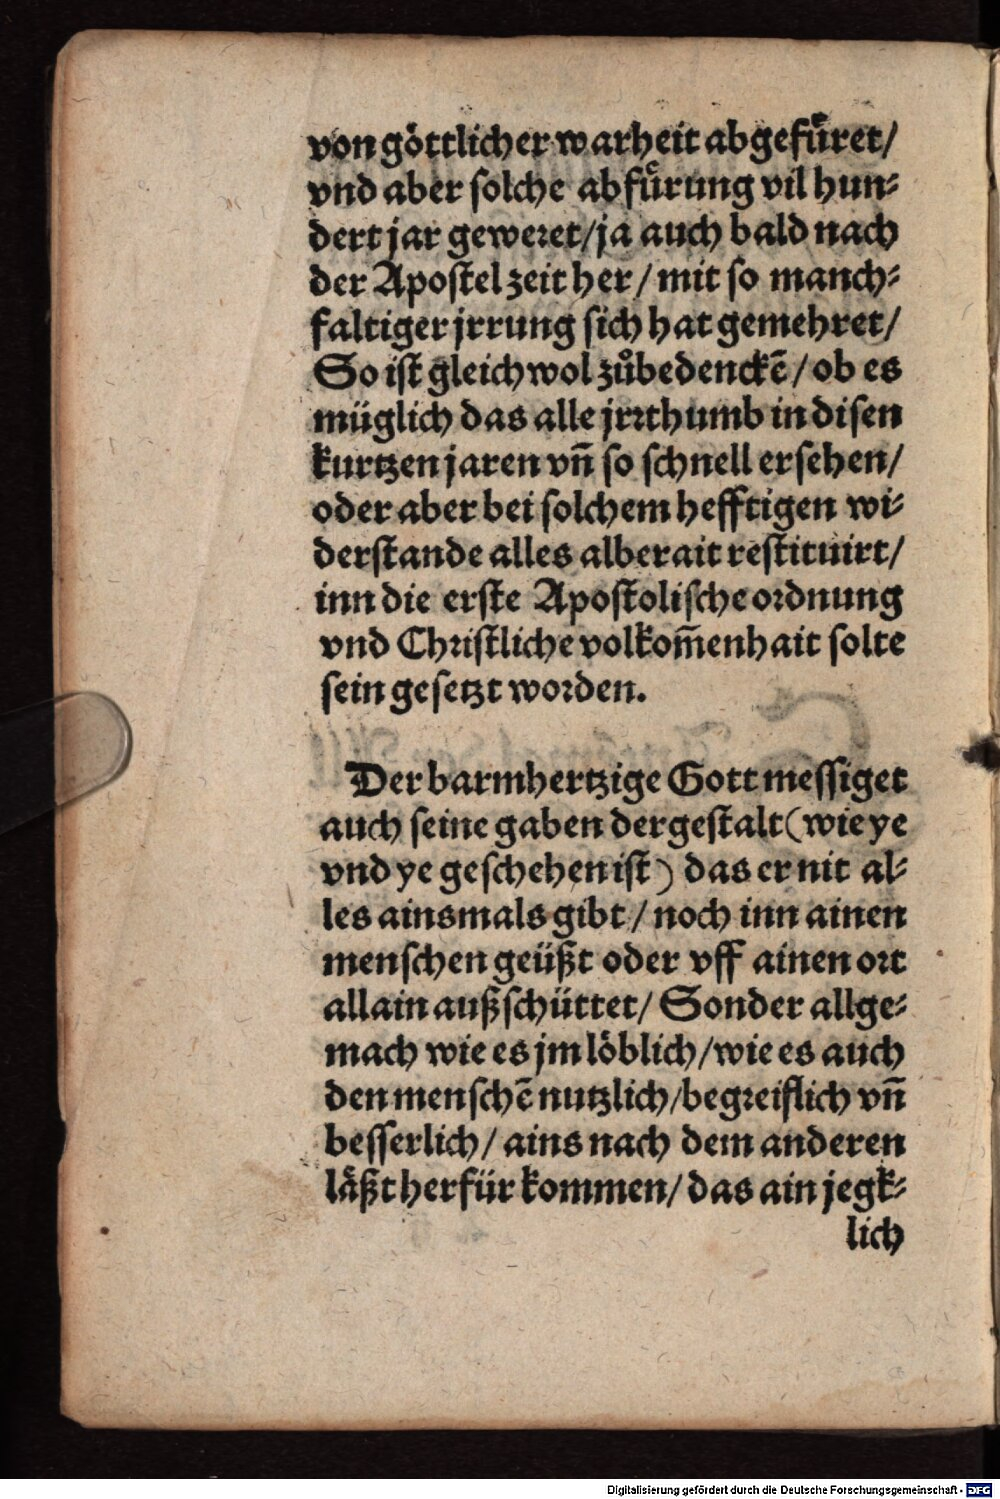 von göttlicher warheit abgefuͤret/
vnd aber solche abfuͤrung vil hun⸗
dert jar geweret/ja auch bald nach
der Apostel zeit her / mit so manch⸗
faltiger jrrung sich hat gemehret/
So ist gleichwol zůbedenckē / ob es
müglich das alle jrrthumb in disen
kurtzen jaren vn̄ so schnell ersehen/
oder aber bei solchem hefftigen wi⸗
derstande alles alberait restituirt/
inn die erste Apostolische ordnung
vnd Christliche volkom̄enhait solte
sein gesetzt worden.
Der barmhertzige Gott messiget
auch seine gaben dergestalt (wie ye
vnd ye geschehen ist) das er nit al⸗
les ainsmals gibt / noch inn ainen
menschen geüßt oder vff ainen ort
allain außschüttet/ Sonder allge⸗
mach wie es jm löblich/wie es auch
den menschē nutzlich/begreiflich vn̄
besserlich/ ains nach dem anderen
läßt herfür kommen/ das ain jegk⸗
lich
Digitalisierung gefördert durch die Deutsche Forschungsgemeinschaft - DFG